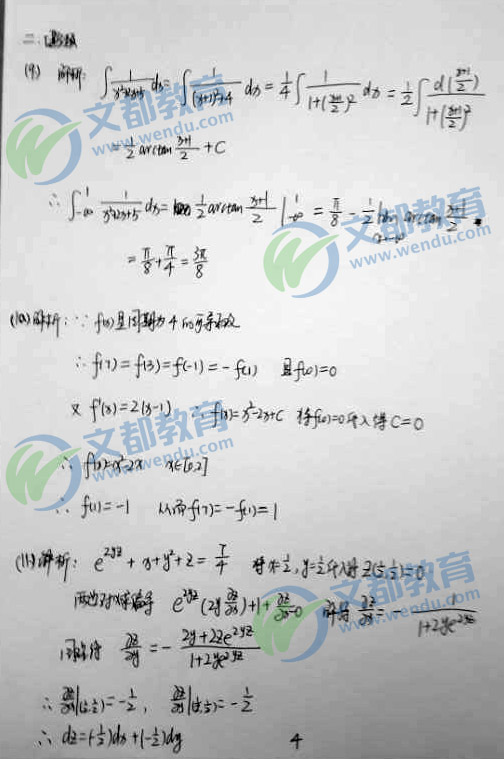 二、填空题
(9) 解析: ∫ 1/(x²+2x+5) dx = ∫ 1/((x+1)²+4) dx = 1/4 ∫ 1/(1+((x+1)/2)²) dx = 1/2 ∫ d((x+1)/2)/(1+((x+1)/2)²)
= 1/2 arctan (x+1)/2 + C
∴ ∫_{-∞}^{1} 1/(x²+2x+5) dx = 1/2 arctan (x+1)/2 |_{-∞}^{1} = π/8 - 1/2 lim_{x→-∞} arctan (x+1)/2
= π/8 + π/4 = 3π/8
(10) 解析: ∵ f(x)是周期为4的可导奇函数
∴ f(7) = f(3) = f(-1) = -f(1) 且f(0)=0
又 f'(x) = 2(x-1) ∴ f(x) = x²-2x+C 将f(0)=0代入得 C=0
∴ f(x)=x²-2x x∈[0,2]
∴ f(1)=-1 从而f(7)=-f(1)=1
(11) 解析: e^{2yz} + x + y² + z = 7/4 将x=1/2, y=1/2代入得 z(1/2,1/2)=0
两边对x求偏导 e^{2yz}(2y ∂z/∂x)+1+∂z/∂x=0 解得 ∂z/∂x = - 1/(1+2ye^{2yz})
同理得 ∂z/∂y = - (2y+2ze^{2yz})/(1+2ye^{2yz})
∴ ∂z/∂x|(1/2,1/2) = -1/2, ∂z/∂y|(1/2,1/2) = -1/2
∴ dz=(-1/2)dx+(-1/2)dy
4
文都教育
www.wendu.com
文都教育
www.wendu.com
文都教育
www.wendu.com
文都教育
www.wendu.com